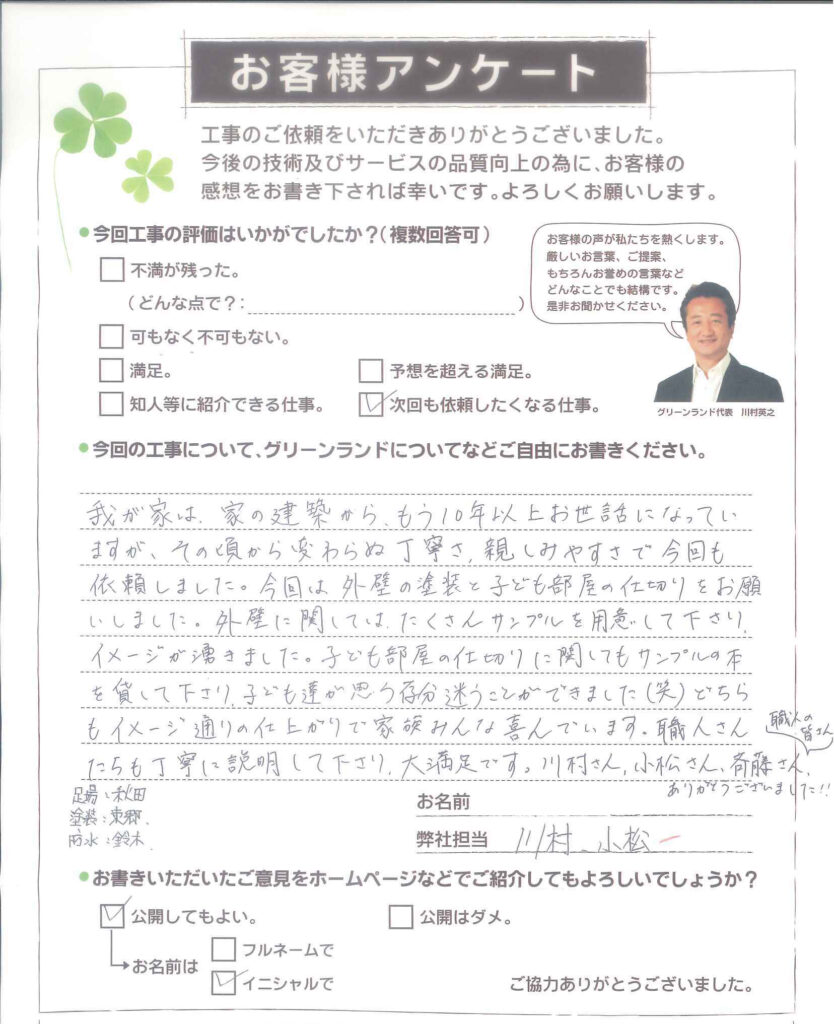 お客様アンケート
工事のご依頼をいただきありがとうございました。
今後の技術及びサービスの品質向上の為に、お客様の
感想をお書き下されば幸いです。よろしくお願いします。
●今回工事の評価はいかがでしたか？（複数回答可）
不満が残った。
（どんな点で？：　）
可もなく不可もない。
満足。
予想を超える満足。
知人等に紹介できる仕事。
次回も依頼したくなる仕事。
お客様の声が私たちを熱くします。
厳しいお言葉、ご提案、
もちろんお誉めの言葉など
どんなことでも結構です。
是非お聞かせください。
グリーンランド代表　川村英之
●今回の工事について、グリーンランドについてなどご自由にお書きください。
我が家は、家の建築から、もう10年以上お世話になってい
ますが、その頃から変わらぬ丁寧さ、親しみやすさで今回も
依頼しました。今回は、外壁の塗装と子ども部屋の仕切りをお願
いしました。外壁に関しては、たくさんサンプルを用意して下さり、
イメージが湧きました。子ども部屋の仕切りに関してもサンプルの本
を貸して下さり、子ども達が思う存分迷うことができました（笑）どちら
もイメージ通りの仕上がりで家族みんな喜んでいます。職人さん
たちも丁寧に説明して下さり、大満足です。川村さん、小松さん、斉藤さん、
職人の
皆さん
ありがとうございました!!
足場：秋田
塗装：東郷
防水：鈴木
お名前
弊社担当　川村、小松
●お書きいただいたご意見をホームページなどでご紹介してもよろしいでしょうか？
公開してもよい。
公開はダメ。
お名前は
フルネームで
イニシャルで
ご協力ありがとうございました。